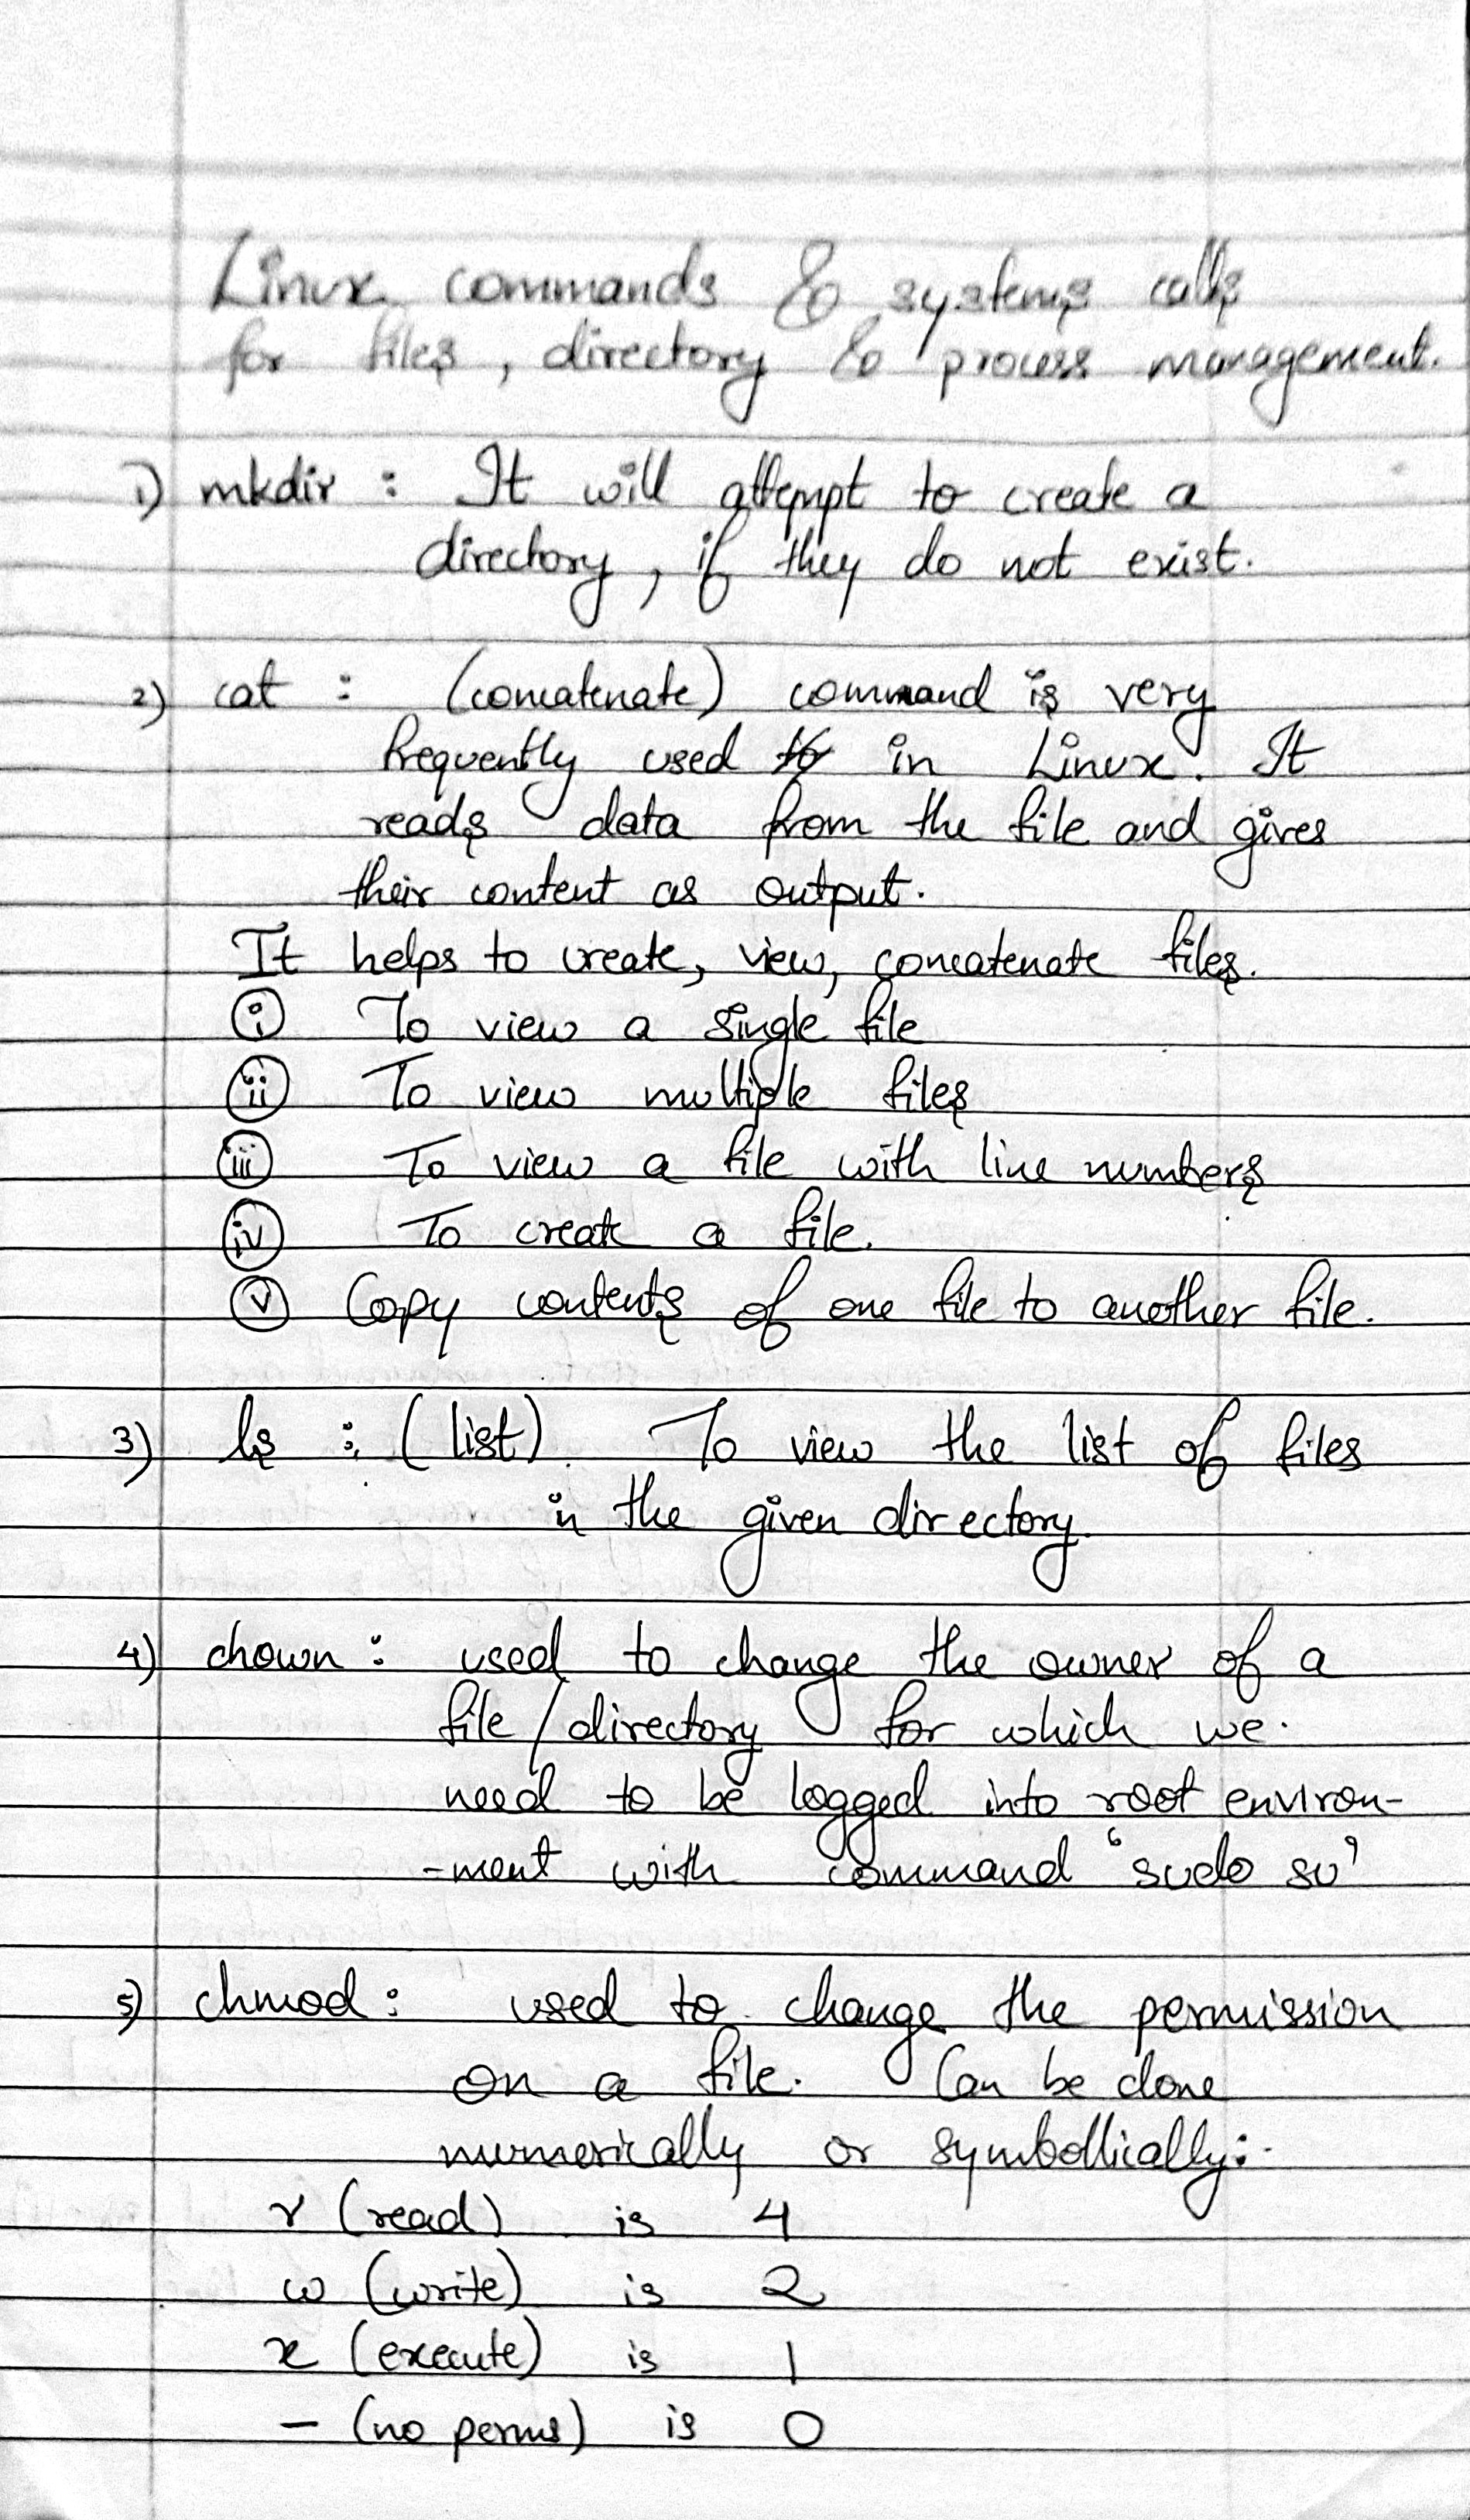 Linux commands & systems calls
for files, directory & process management.
1) mkdir : It will attempt to create a
directory, if they do not exist.
2) cat : (concatenate) command is very
frequently used in Linux. It
reads data from the file and gives
their content as output.
It helps to create, view, concatenate files.
i To view a single file
ii To view multiple files
iii To view a file with line numbers
iv To create a file.
v Copy contents of one file to another file.
3) ls : (list). To view the list of files
in the given directory.
4) chown : used to change the owner of a
file/directory for which we
need to be logged into root environ-
-ment with command 'sudo su'
5) chmod : used to change the permission
on a file. Can be done
numerically or symbollically:-
r (read) is 4
w (write) is 2
x (execute) is 1
- (no perms) is 0